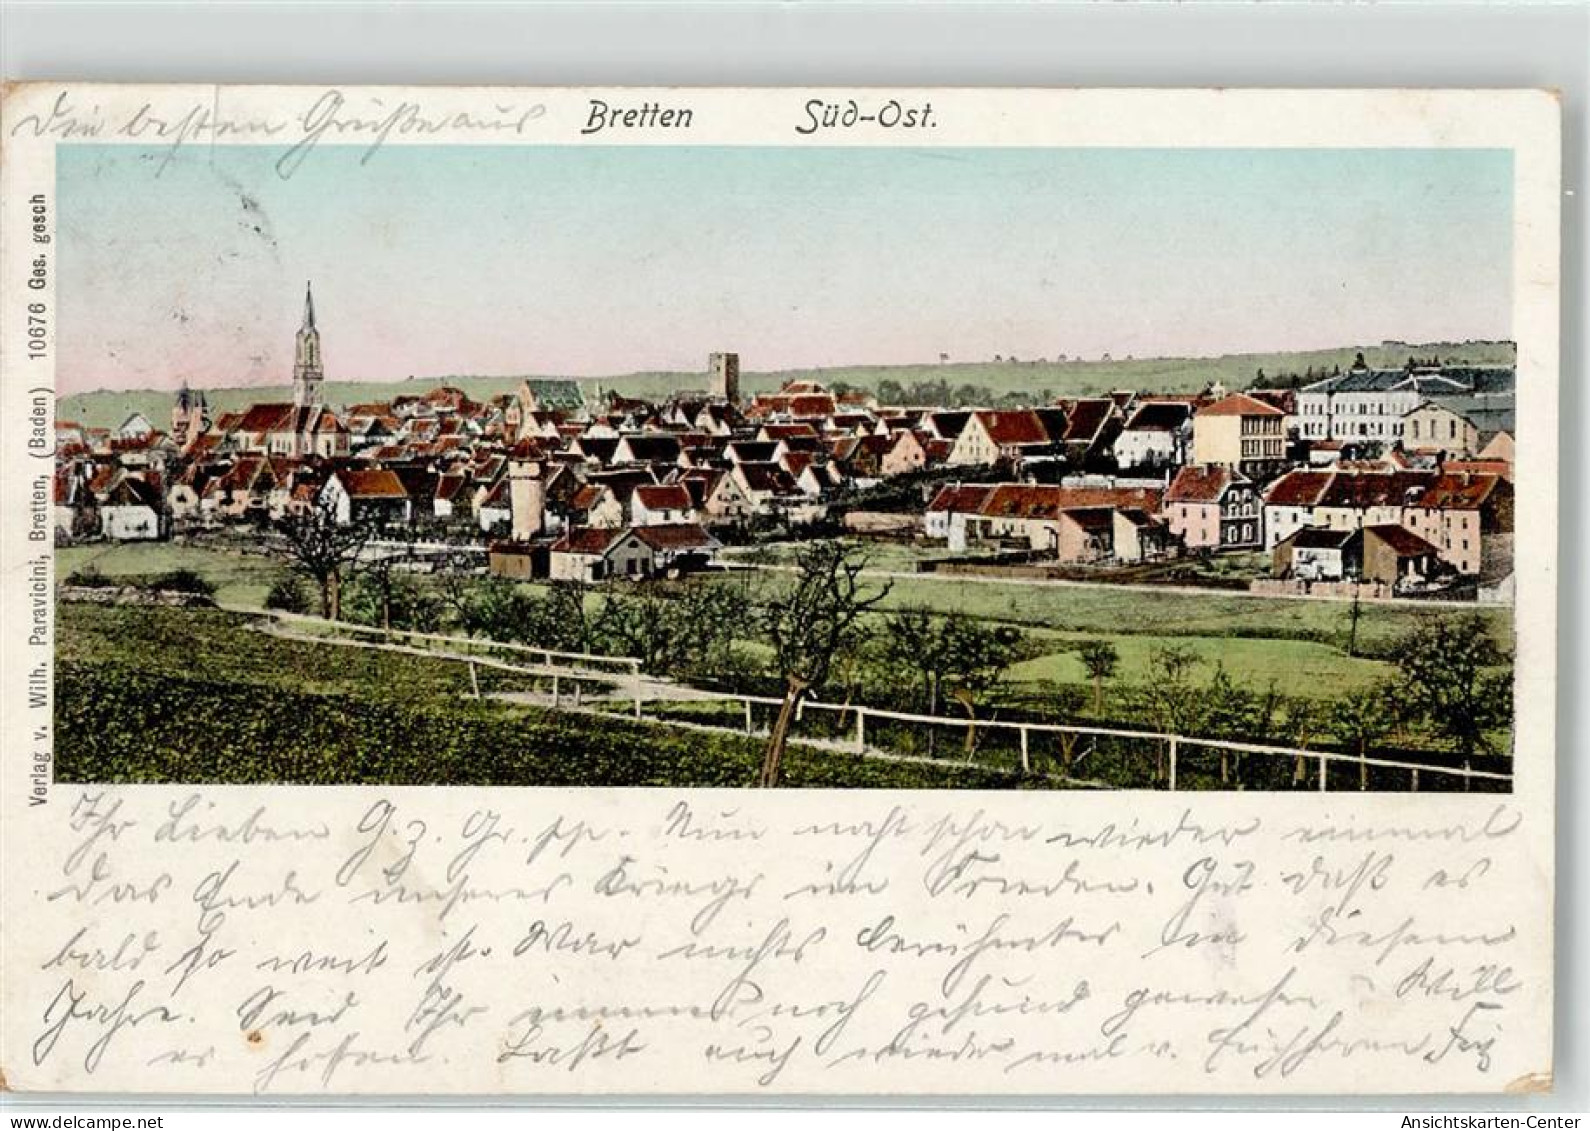 Die besten Grüße aus
Bretten Süd-Ost.
Verlag v. Wilh. Paravicini, Bretten, (Baden) 10676 Ges. gesch
Ihr Lieben G. z. Gr. Nun naht schon wieder einmal
das Ende unseres Kriegs im Frieden. Gut daß es
bald so weit ist. War nichts berühmtes in diesem
Jahre. Seid Ihr immer noch gesund gewesen Will
es hoffen. Laßt auch wieder mal v. Euch hören
Ansichtskarten-Center